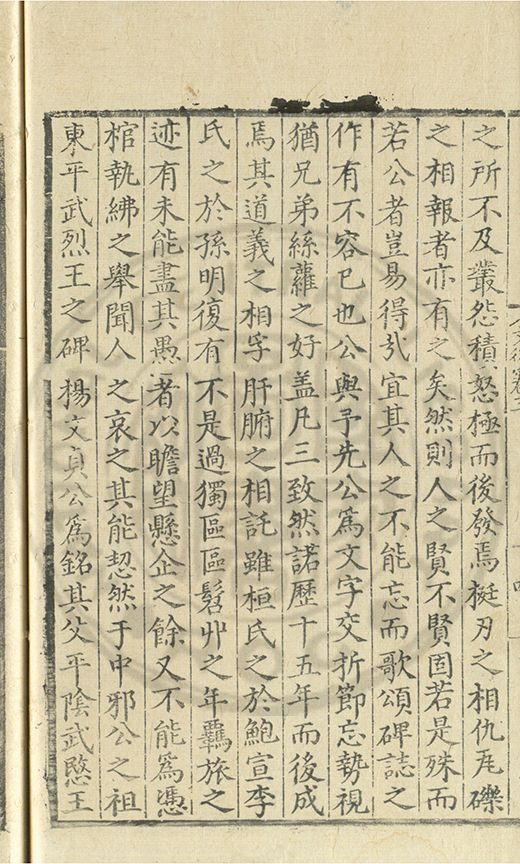 之所不及叢怨積怒極而後發焉梃刃之相仇瓦礫
之相報者亦有之矣然則人之賢不賢固若是殊而
若公者豈易得㢤宜其人之不能忘而歌頌碑誌之
作有不容已也公與予先公爲文字交折節忘勢視
猶兄弟絲蘿之好盖凡三致然諾歷十五年而後成
焉其道義之相孚肝腑之相託雖桓氏之於鮑宣李
氏之於孫明復有不是過獨區區髫丱之年羈旅之
迹有未能盡其愚者以瞻望懸企之餘又不能爲憑
棺執紼之舉聞人之哀之其能恝然于中邪公之祖
東平武烈王之碑楊文貞公爲銘其父平陰武愍王